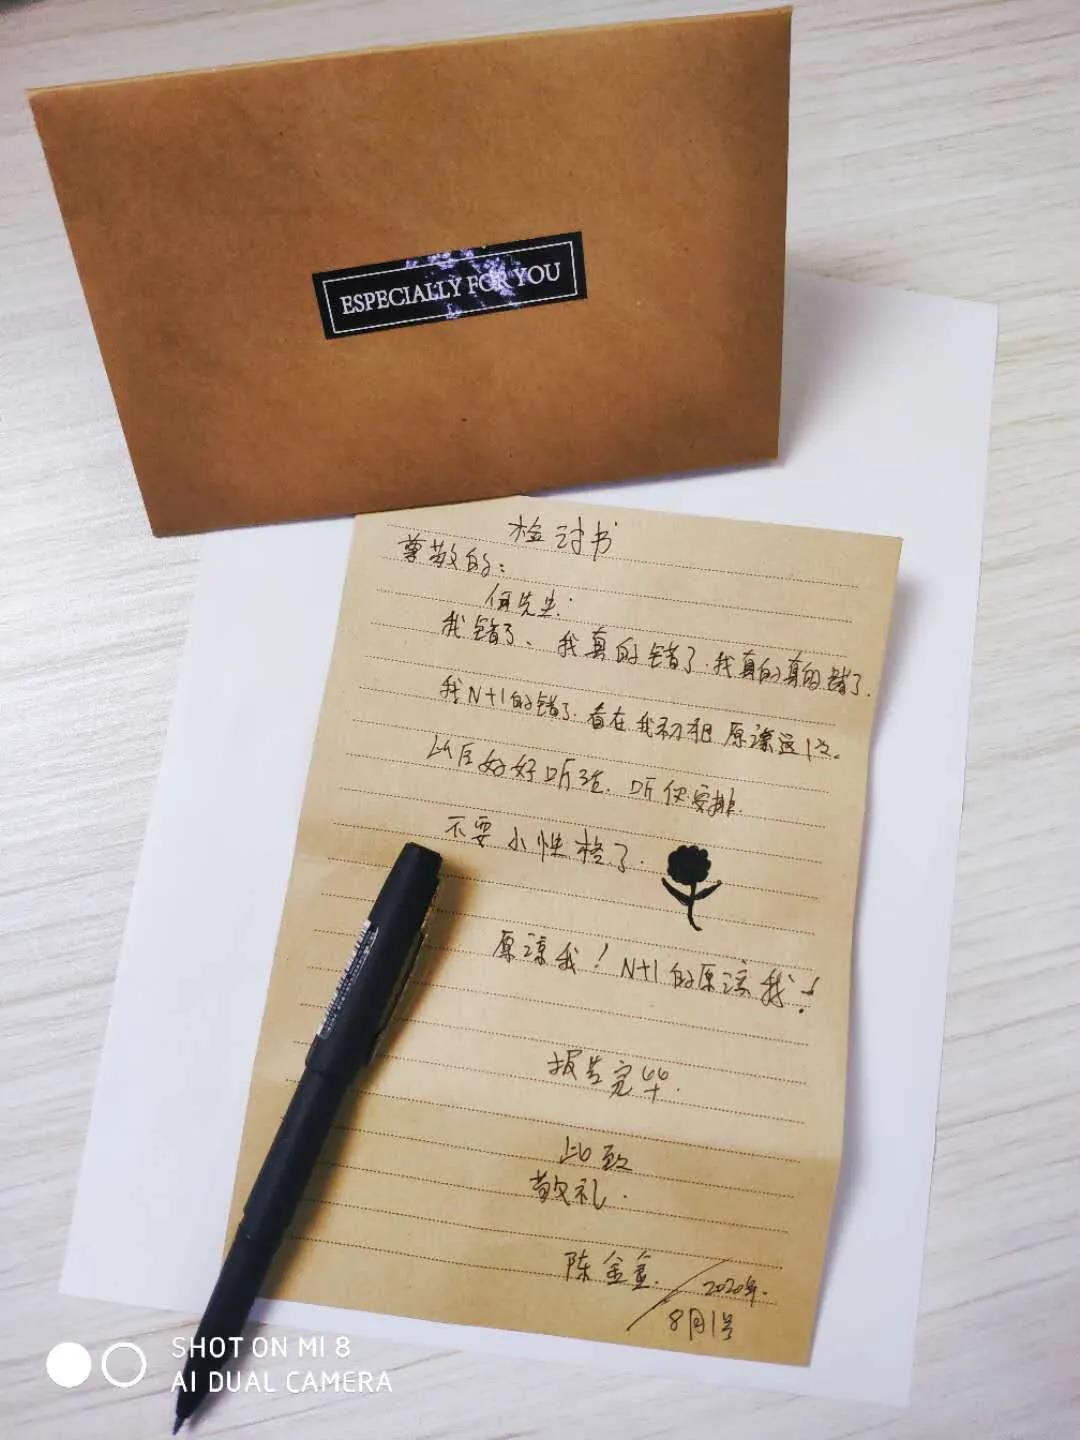 ESPECIALLY FOR YOU
检讨书
尊敬的:
何先生:
我错了、我真的错了.我真的真的错了.
我N+1的错了.看在我初犯 原谅这1次.
以后好好听话.听从安排.
不耍小性格了.
原谅我!N+1的原谅我!
报告完毕.
此致
敬礼.
陈金金. 2020年.
8月1号
SHOT ON MI 8
AI DUAL CAMERA